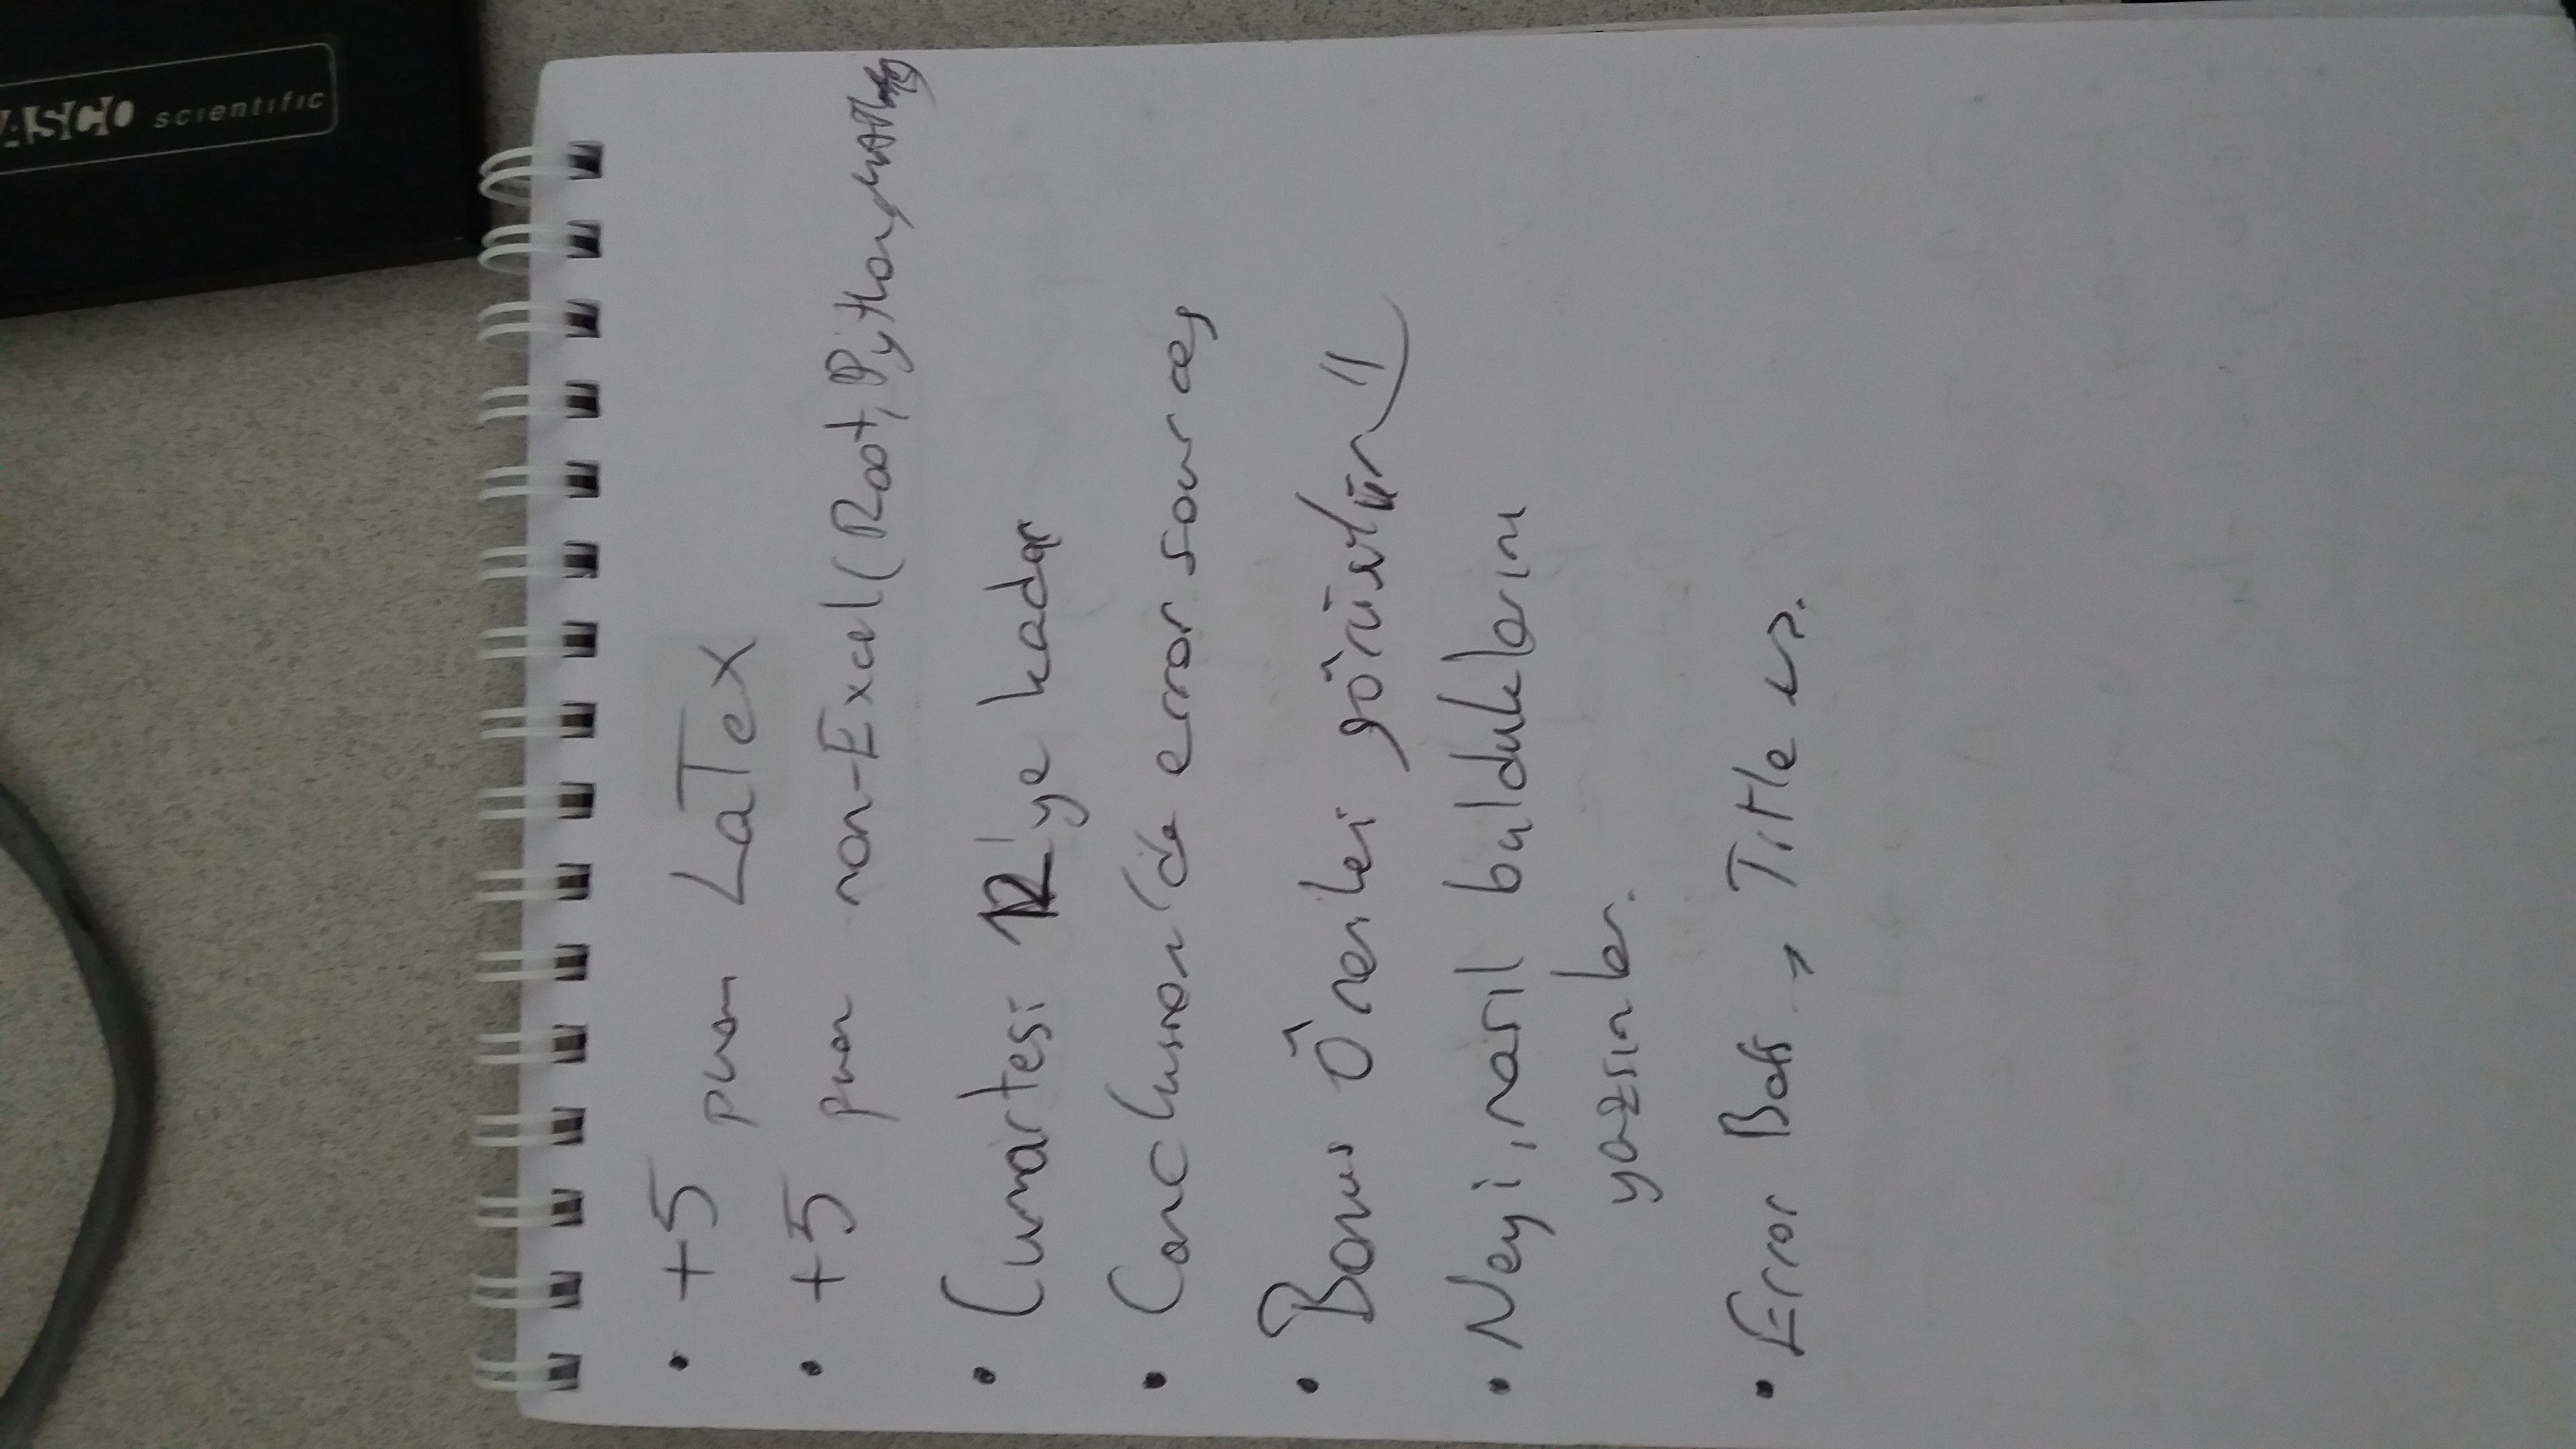 PASCO scientific
• +5 puan LaTeX
• +5 puan non-Excel (Root, Python,
• Cumartesi 12'ye kadar
• Conclusion'da error sources
• Bonus Önerileri görüşülür !!
• Neyi, nasıl bulduklarını
yazsınlar.
• Error Bars, Title vs.